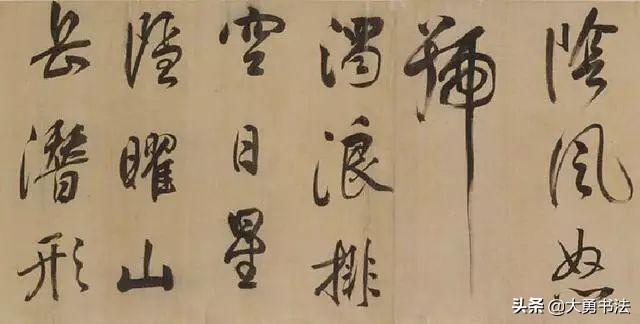 陰風怒
號
濁浪排
空日星
隱曜山
岳潛形
头条 @大勇书法